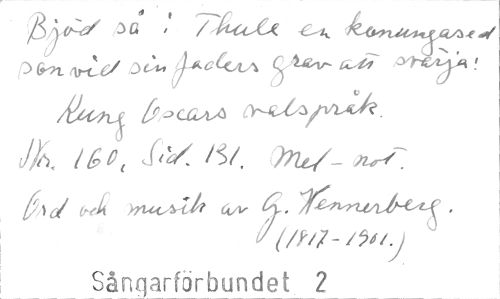 Bjöd så i Thule en konungased
son vid sin faders grav att svärja!
Kung Oscars valspråk.
Nr. 160, Sid. 131. Mel-not.
Ord och musik av G. Wennerberg.
(1817-1901.)
Sångarförbundet 2